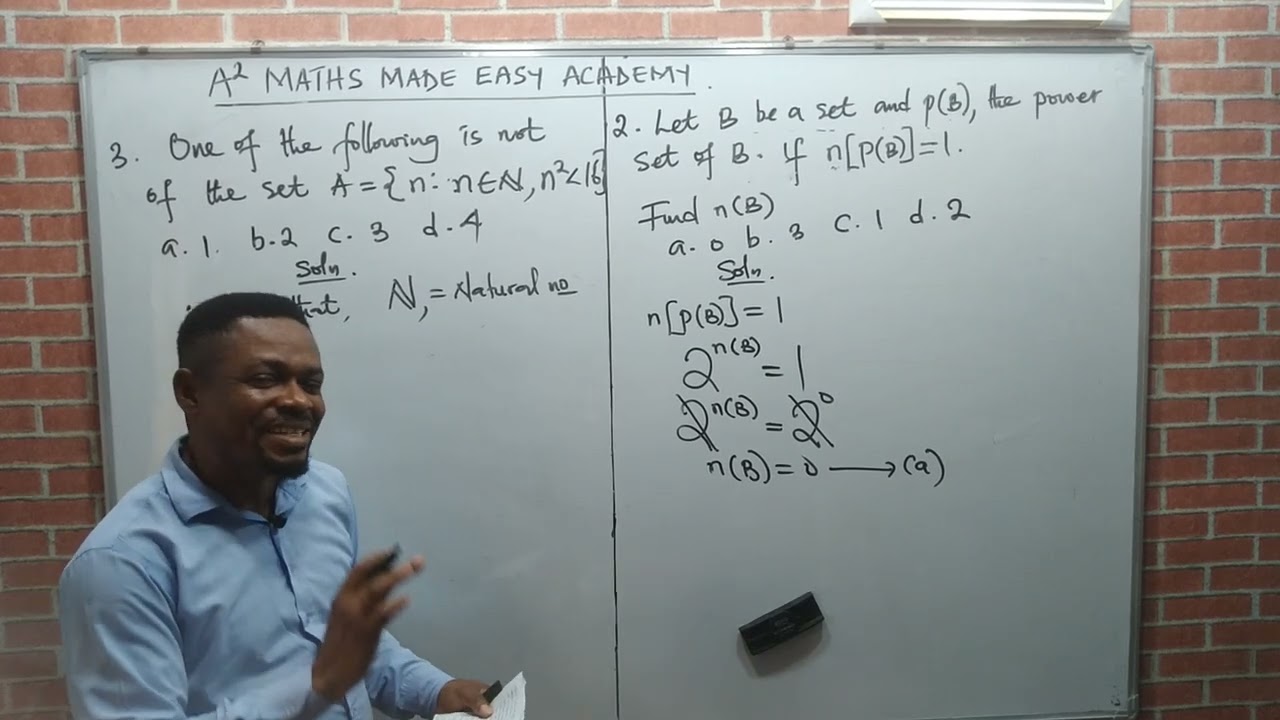 A² MATHS MADE EASY ACADEMY.
3. One of the following is not
of the set A = {n: n∈ℕ, n²<16}
a. 1. b. 2 c. 3 d. 4
Soln.
that, ℕ, = Natural no
2. Let B be a set and p(B), the power
set of B. If n[P(B)]=1.
Find n(B)
a. 0 b. 3 c. 1 d. 2
Soln.
n[p(B)] = 1
2^n(B) = 1
2^n(B) = 2^0
n(B) = 0 ⟶ (a)